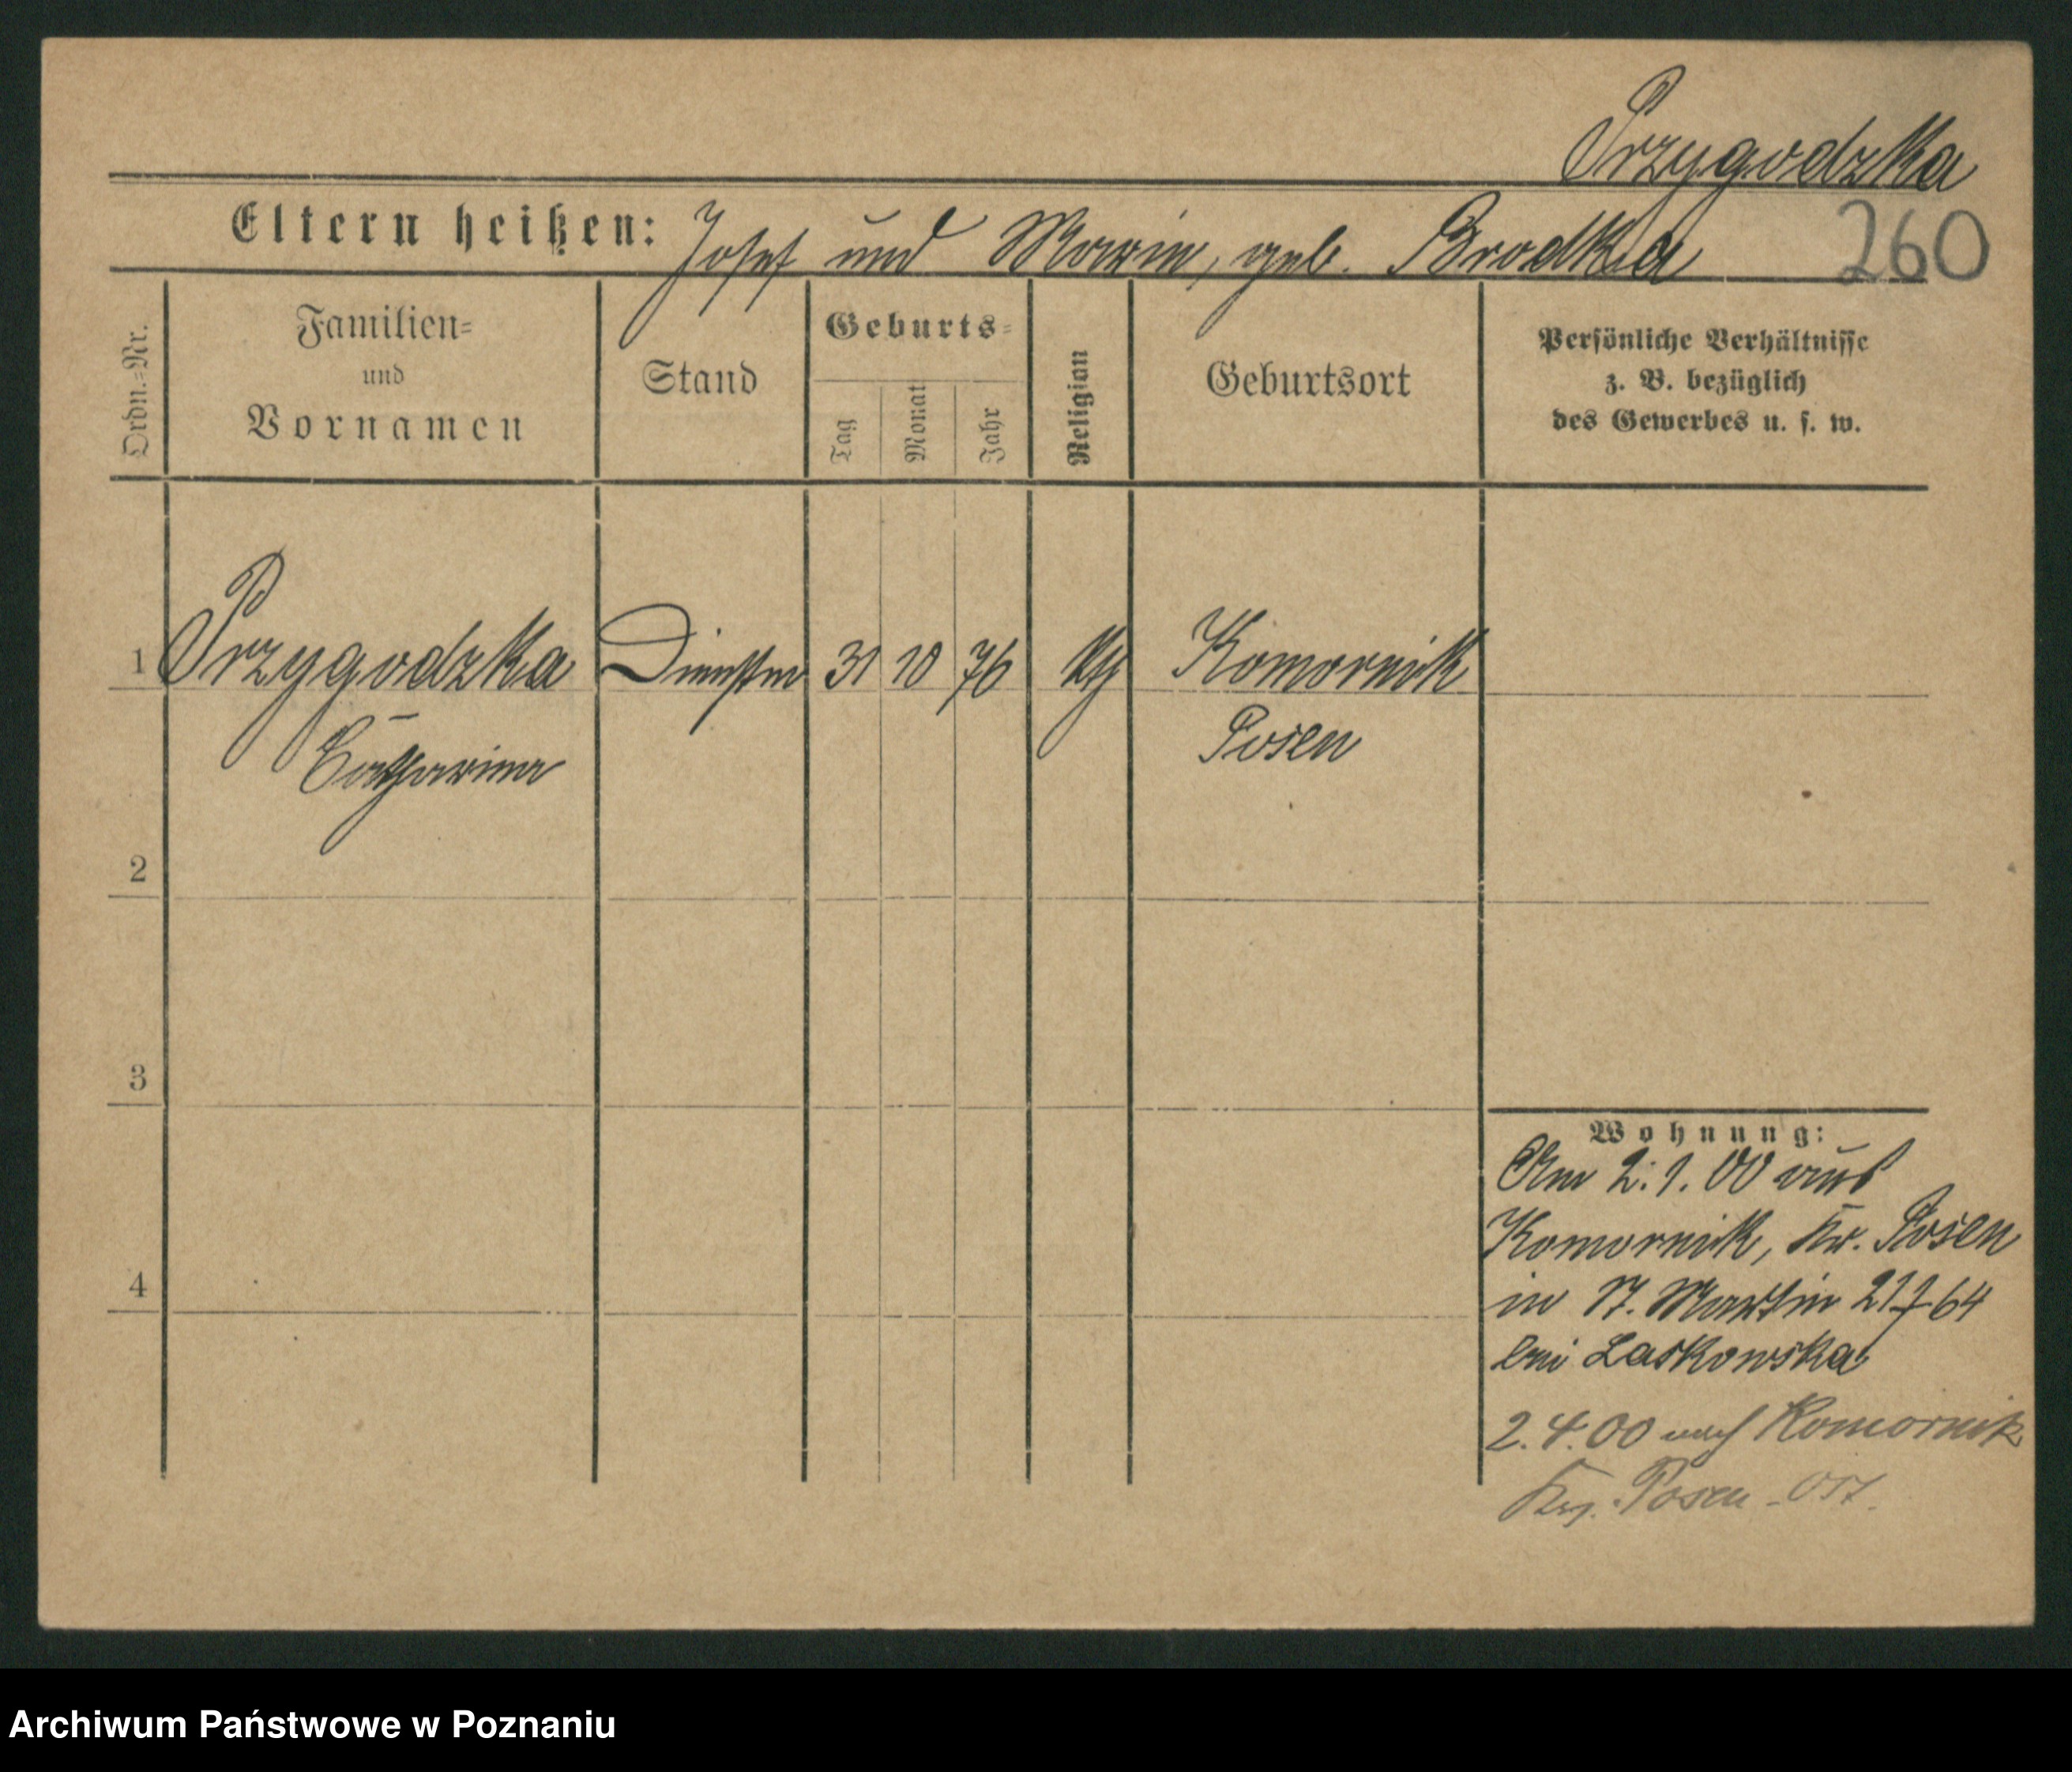 Przygodzka
Eltern heißen: Josef und Marie, geb. Brodka 260
Ordn.=Nr.
Familien=
und
Vornamen
Stand
Geburts=
Tag
Monat
Jahr
Religion
Geburtsort
Persönliche Verhältnisse
z. B. bezüglich
des Gewerbes u. s. w.
1 Przygodzka 31 10 76 kth Komornik
Catharina Posen
2
3
4
Wohnung:
Am 2.1.00 aus
Komornik, Kr. Posen
in St. Martin 64
bei Laskowska
2.4.00 nach Komornik
Krs. Posen-Ost.
Archiwum Państwowe w Poznaniu